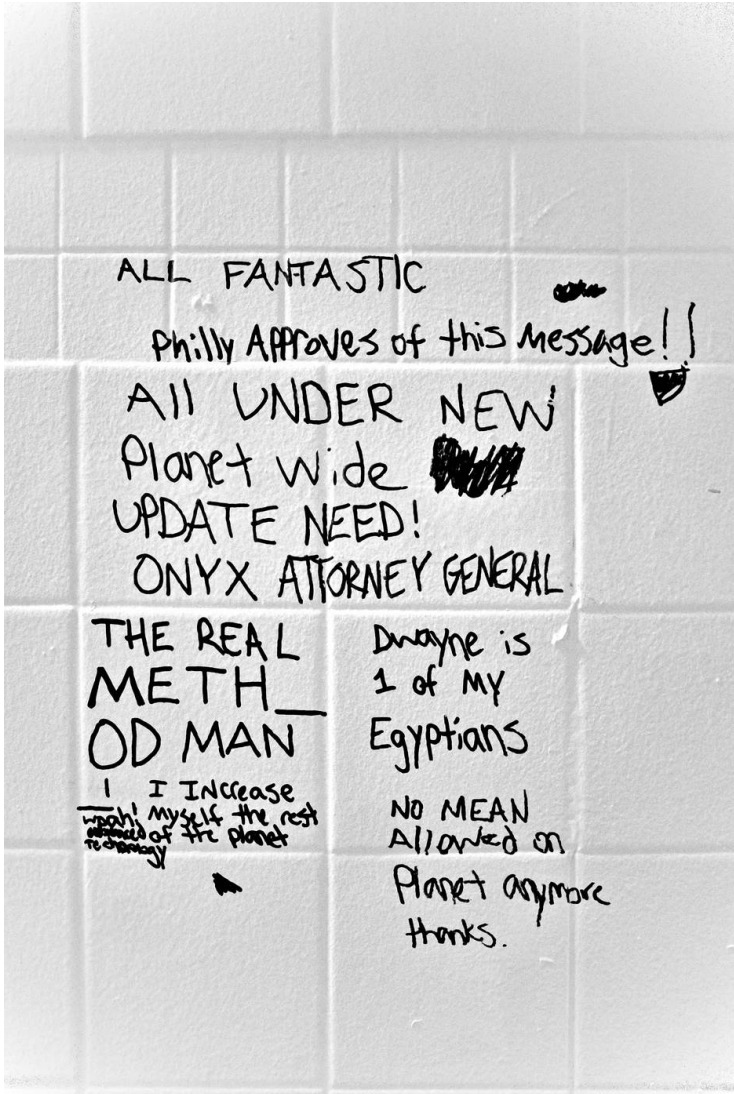 ALL FANTASTIC
Philly Approves of this Message!!
All UNDER NEW
Planet wide
UPDATE NEED!
ONYX ATTORNEY GENERAL
THE REAL
METH_
OD MAN
I INCrease
woah! Myself the rest
advanced of the planet
Technology
Dwayne is
1 of My
Egyptians
NO MEAN
Allowed on
Planet anymore
thanks.